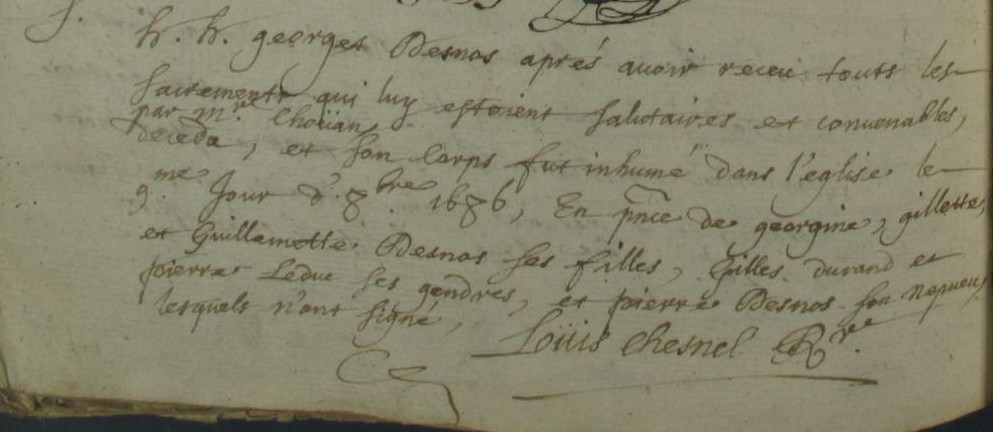 h. h. georges Desnos aprés avoir receu touts les
sacrements qui luy estoient salutaires et convenables,
par m.re Choüan,
deceda, et son corps fut inhumé dans l'eglise le
9.me Jour d'8.bre 1686, En pnce de georgine, gillette,
et Guillemette Desnos ses filles, Gilles durand et
pierre Leduc ses gendres, et pierre Desnos son nepueu,
lesquels n'ont signé,
Loüis Chesnel Rr.